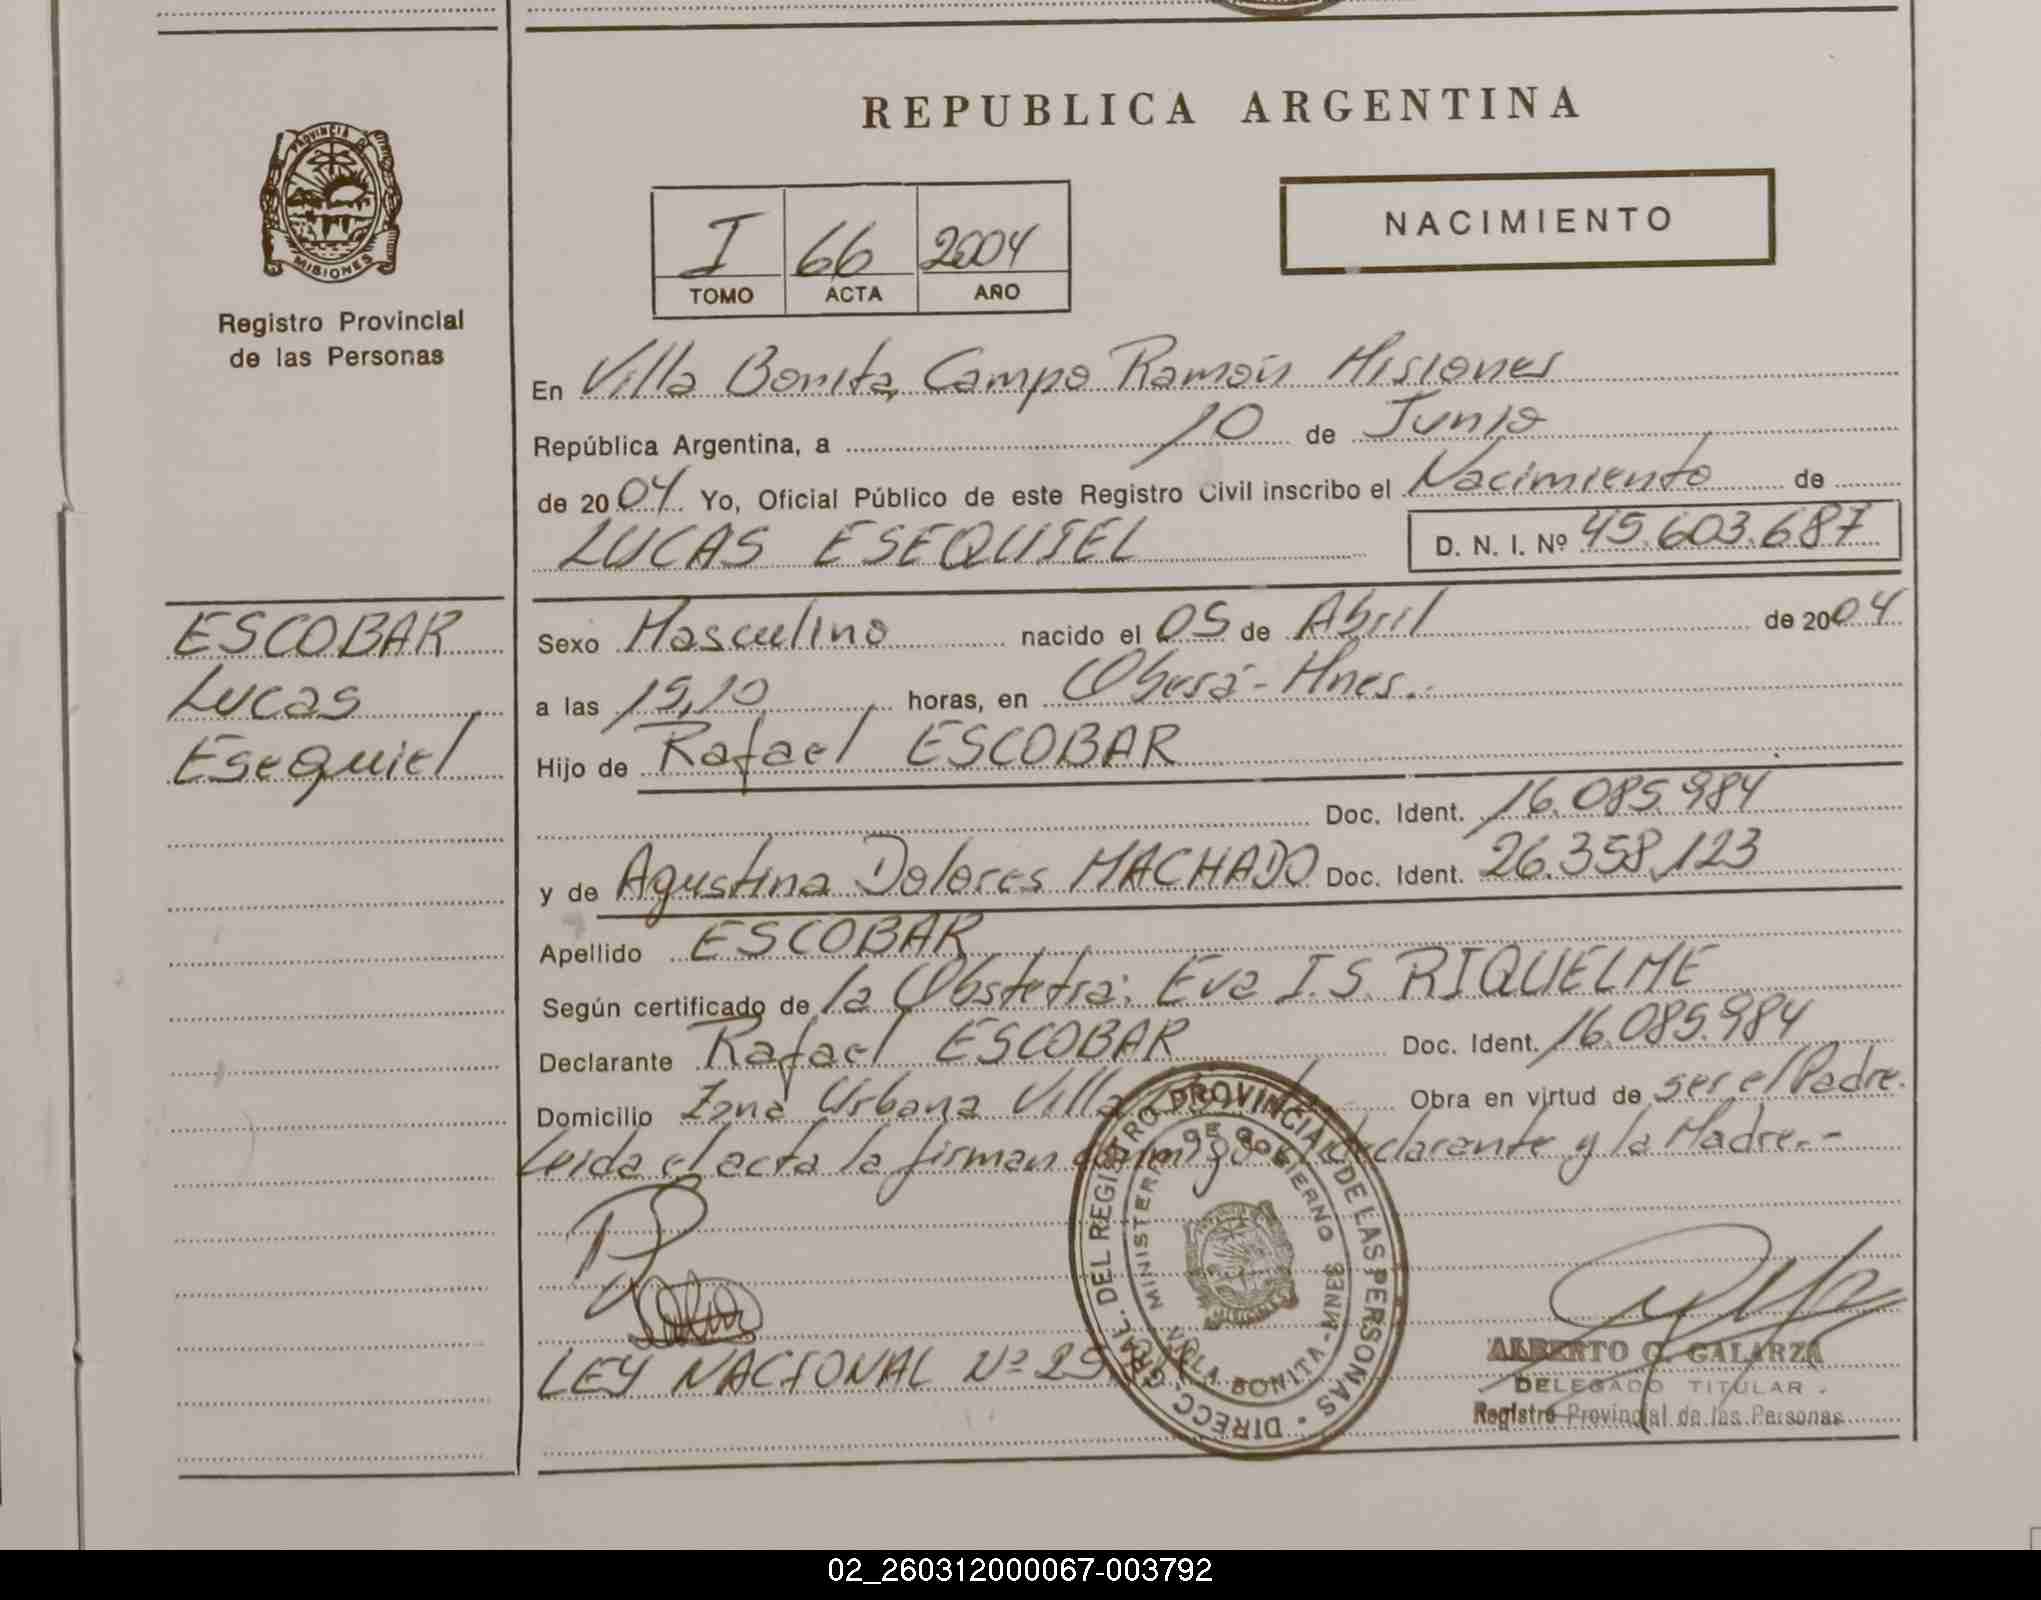 REPUBLICA ARGENTINA
PROVINCIA DE
MISIONES
Registro Provincial
de las Personas
I 66 2004
TOMO ACTA AÑO
NACIMIENTO
En Villa Bonita, Campo Ramón Misiones
República Argentina, a 10 de Junio
de 2004 Yo, Oficial Público de este Registro Civil inscribo el Nacimiento de
LUCAS ESEQUIEL D. N. I. Nº 45.603.687
ESCOBAR
Lucas
Esequiel
Sexo Masculino nacido el 05 de Abril de 2004
a las 15,10 horas, en Oberá - Mnes.-
Hijo de Rafael ESCOBAR
Doc. Ident. 16.085.984
y de Agustina Dolores MACHADO Doc. Ident. 26.358.123
Apellido ESCOBAR
Según certificado de la Obstetra: Eva I.S. RIQUELME
Declarante Rafael ESCOBAR Doc. Ident. 16.085.984
Domicilio Zona Urbana Villa Obra en virtud de ser el Padre.
Leida el acta la firman conmigo el declarante y la Madre.-
LEY NACIONAL Nº 25
DIRECC. GRAL. DEL REGISTRO PROVINCIAL DE LAS PERSONAS
MINISTERIO DE GOBIERNO
VILLA BONITA - MNES
ALBERTO G. GALARZA
DELEGADO TITULAR
Registro Provincial de las Personas
02_260312000067-003792